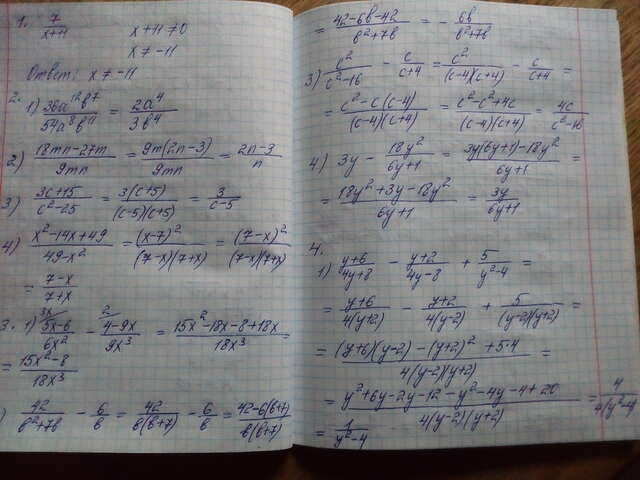 1. 7/(x+11) x+11≠0
x≠-11
Ответ: x≠-11
2. 1) 36a¹²b⁷/54a⁸b¹¹ = 2a⁴/3b⁴
2) (18mn-27m)/9mn = 9m(2n-3)/9mn = (2n-3)/n
3) (3c+15)/(c²-25) = 3(c+5)/(c-5)(c+5) = 3/(c-5)
4) (x²-14x+49)/(49-x²) = (x-7)²/(7-x)(7+x) = (7-x)²/(7-x)(7+x)
= (7-x)/(7+x)
3. 1) 3x/ (5x-6)/6x² - 2/ (4-9x)/9x³ = (15x²-18x-8+18x)/18x³ =
= (15x²-8)/18x³
) 42/(b²+7b) - 6/b = 42/b(b+7) - 6/b = (42-6(b+7))/b(b+7)
= (42-6b-42)/(b²+7b) = - 6b/(b²+7b)
3) c²/(c²-16) - c/(c+4) = c²/(c-4)(c+4) - c/(c+4) =
= (c²-c(c-4))/(c-4)(c+4) = (c²-c²+4c)/(c-4)(c+4) = 4c/(c²-16)
4) 3y - 18y²/(6y+1) = (3y(6y+1)-18y²)/(6y+1) =
= (18y²+3y-18y²)/(6y+1) = 3y/(6y+1)
4.
1) (y+6)/(4y+8) - (y+2)/(4y-8) + 5/(y²-4) =
= (y+6)/4(y+2) - (y+2)/4(y-2) + 5/(y-2)(y+2) =
= ((y+6)(y-2)-(y+2)²+5·4)/4(y-2)(y+2) =
= (y²+6y-2y-12-y²-4y-4+20)/4(y-2)(y+2) = 4/4(y²-4)
= 1/(y²-4)